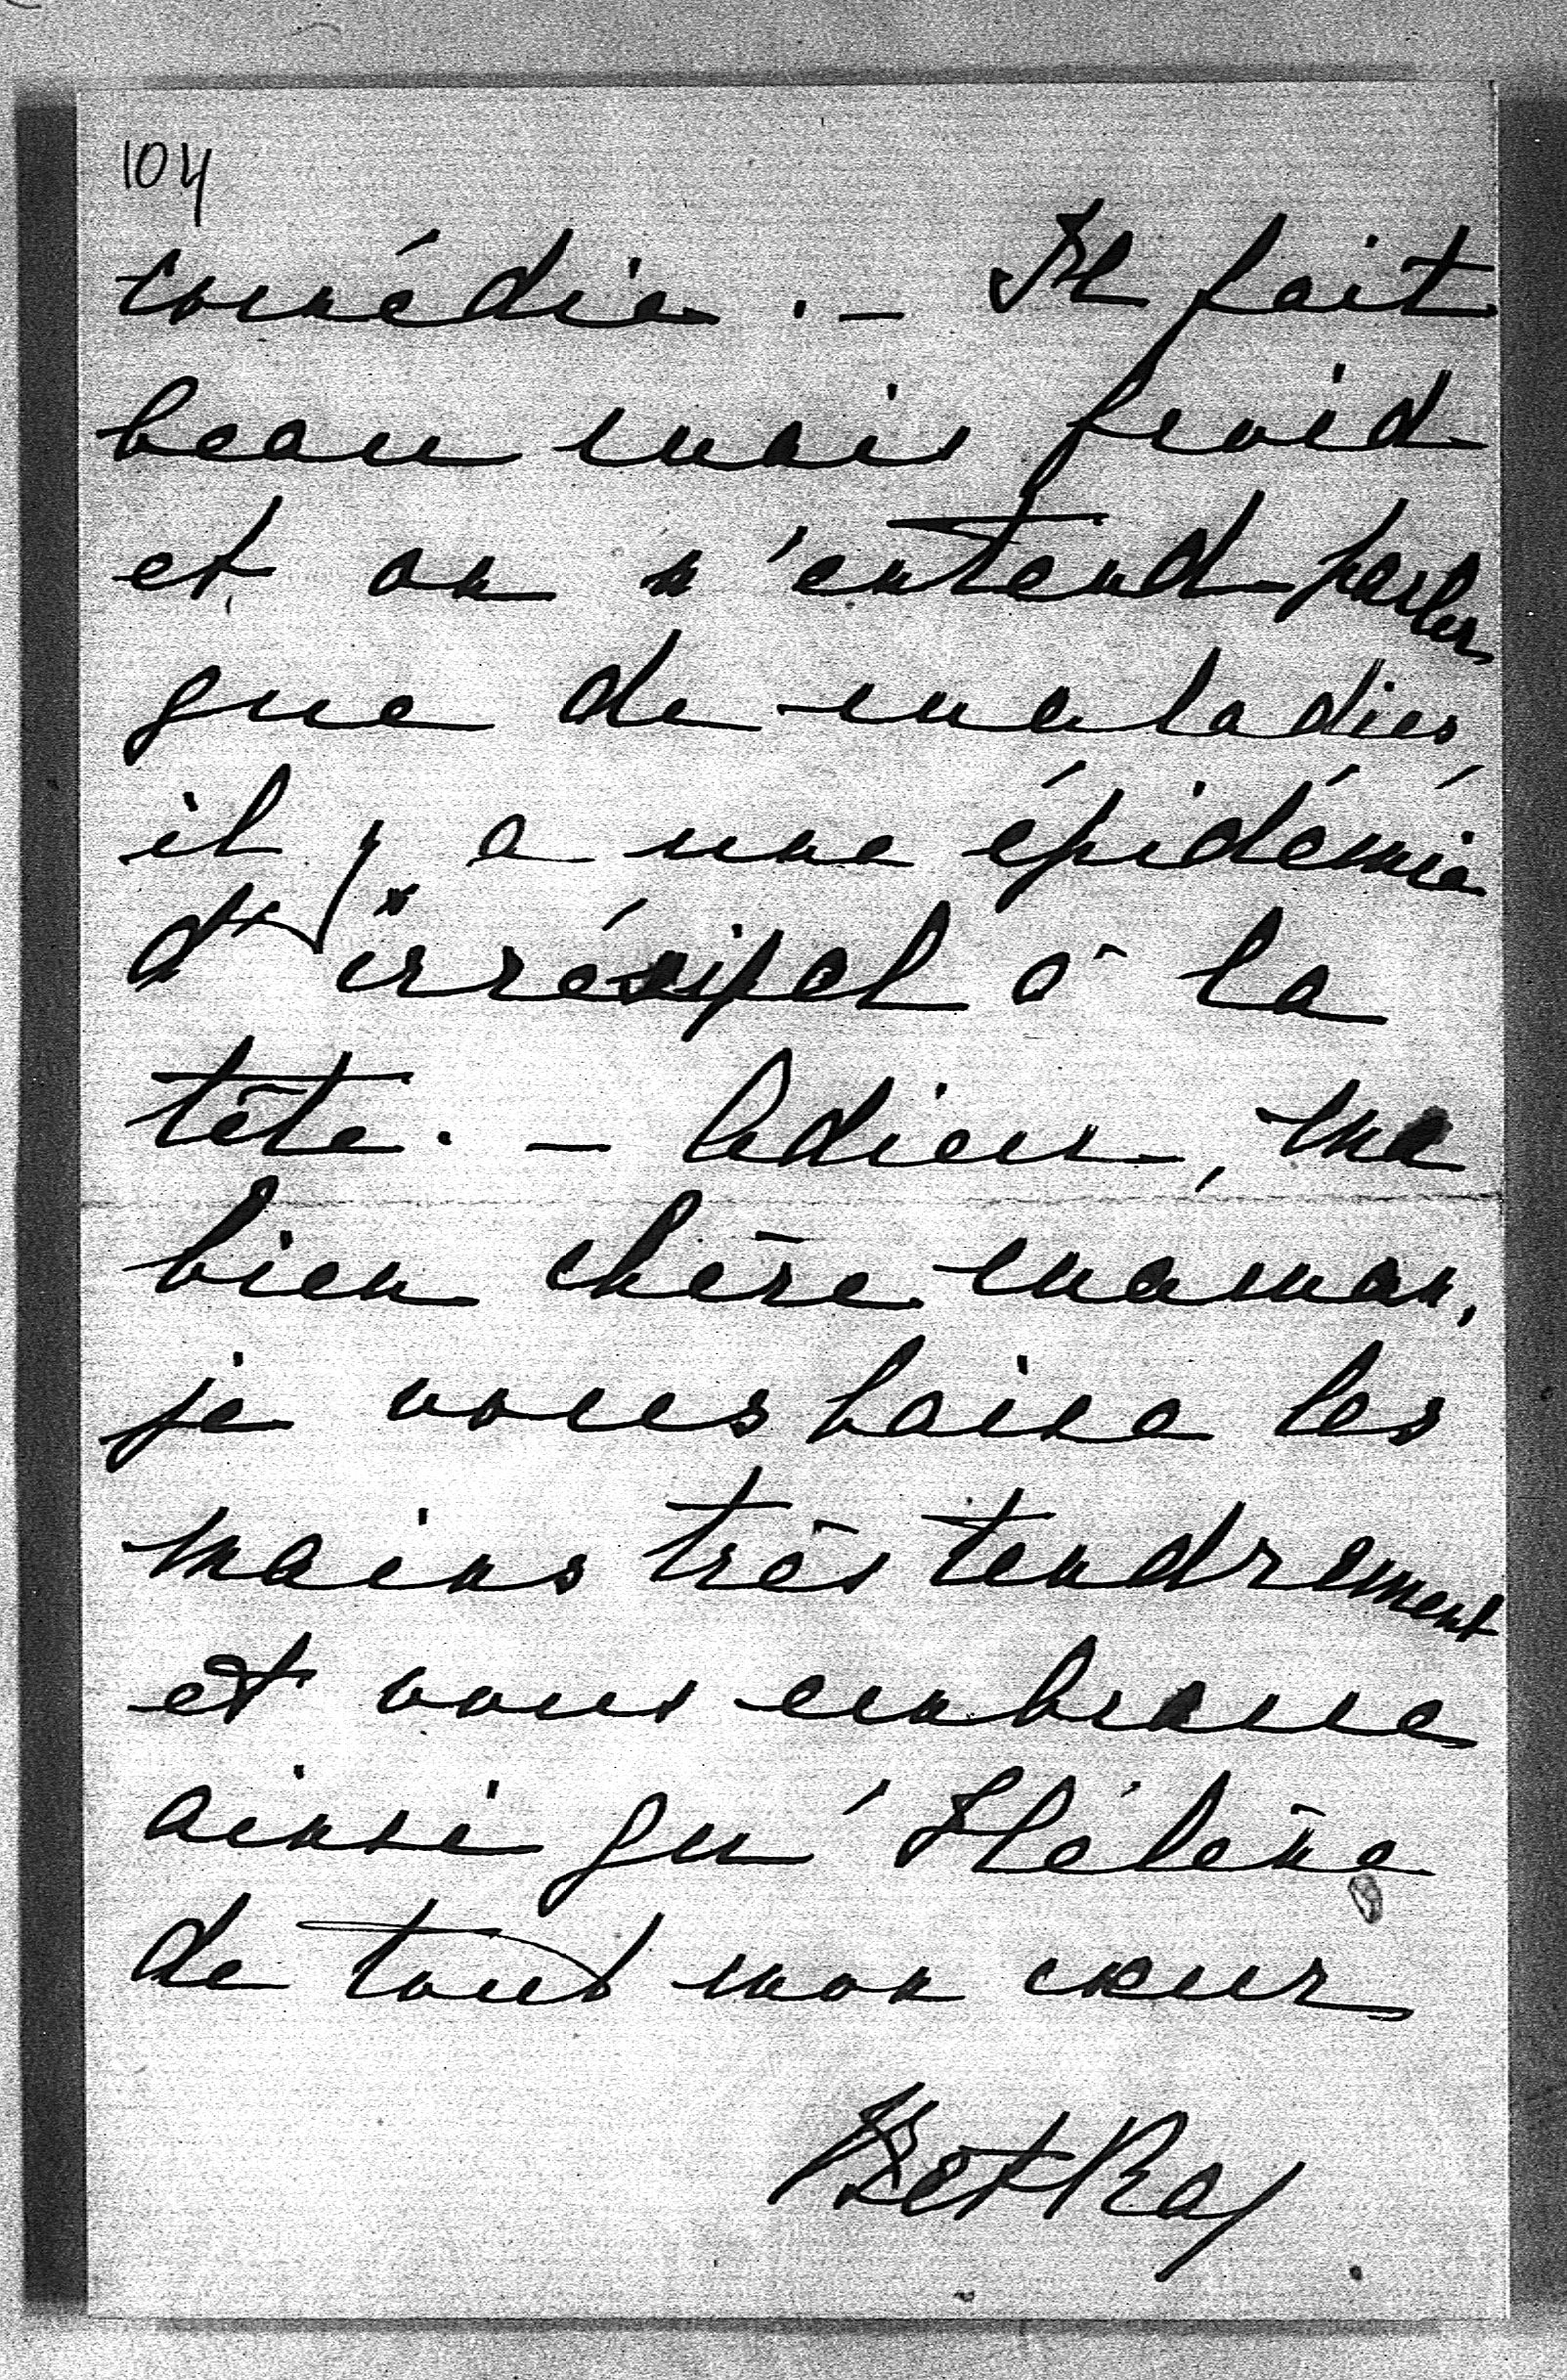 104
comédie. — Il fait
beau mais froid
et on n'entend parler
que de maladies,
il y a une épidémie
d'irrésipel à la
tête. — Adieu, ma
bien chère maman,
je vous baise les
mains très tendrement
et vous embrasse
ainsi qu'Hélène
de tout mon cœur